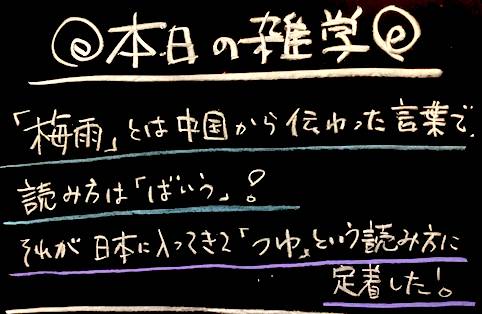 本日の雑学
「梅雨」とは中国から伝わった言葉で、
読み方は「ばいう」!
それが日本に入ってきて「つゆ」という読み方に
定着した!